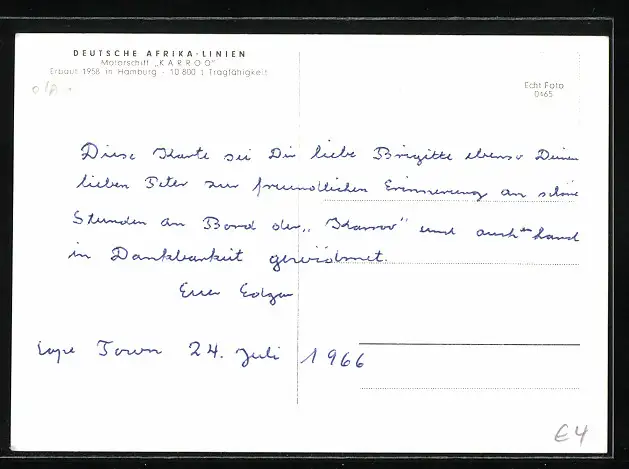 DEUTSCHE AFRIKA-LINIEN
Motorschiff „KARROO"
Erbaut 1958 in Hamburg - 10 800 t Tragfähigkeit
Echt Foto
D465
Diese Karte sei Dir liebe Brigitte ebenso Deinem
lieben Peter zur freundlichen Erinnerung an schöne
Stunden an Bord der „Karroo" und auch an Land
in Dankbarkeit gewidmet.
Euer Edgar
Cape Town 24. Juli 1966
€4